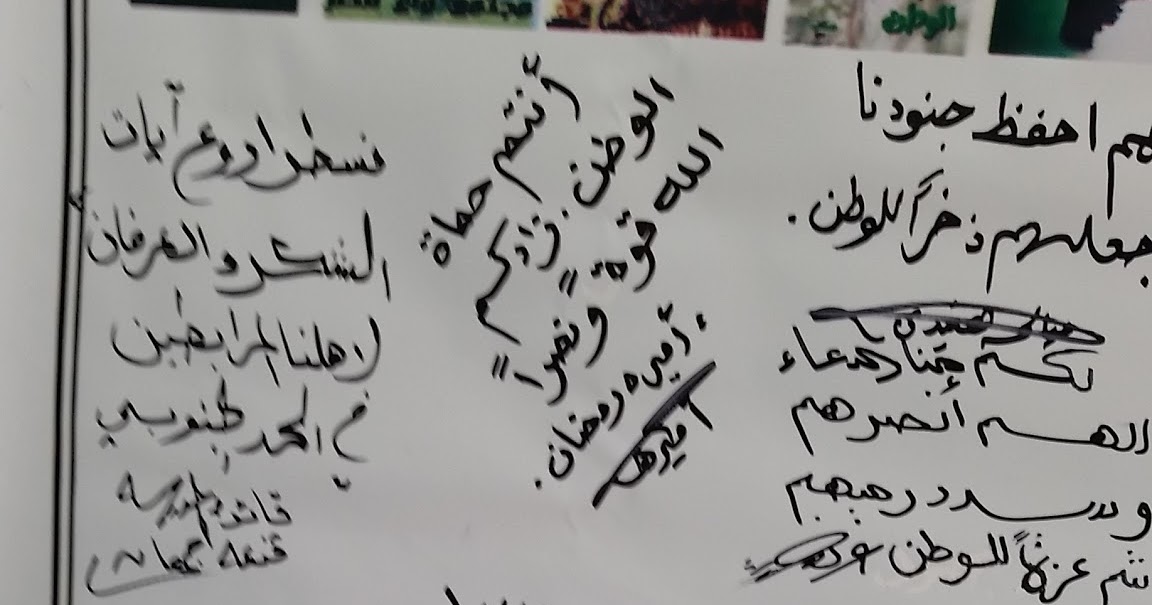 الوطن
هم احفظ جنودنا
جعلهم ذخراً للوطن.
لكم منا الدعاء
اللهم أنصرهم
وسدد رميهم
ثم عزيزاً للوطن
أنتم حماة
الوطن. نزفكم
الله قوة
ونصراً
أميره رمضان.
أميرة
نسطر اروع آيات
الشكر والعرفان
لاهلنا المرابطين
في الحد الجنوبي
قائدة مدرسة